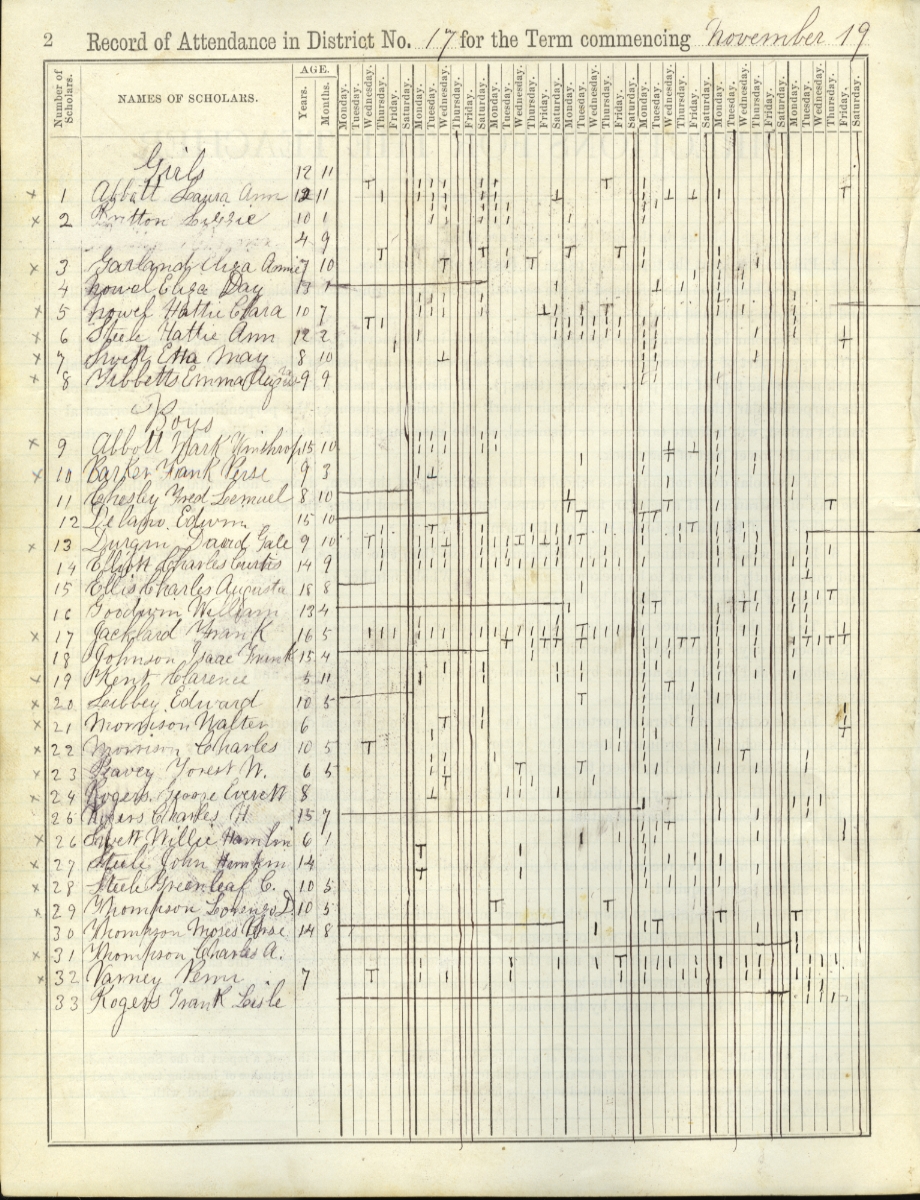 2 Record of Attendance in District No. 17 for the Term commencing November 19
Number of Scholars. NAMES OF SCHOLARS. AGE. Years. Months. Monday. Tuesday. Wednesday. Thursday. Friday. Saturday. Monday. Tuesday. Wednesday. Thursday. Friday. Saturday. Monday. Tuesday. Wednesday. Thursday. Friday. Saturday. Monday. Tuesday. Wednesday. Thursday. Friday. Saturday. Monday. Tuesday. Wednesday. Thursday. Friday. Saturday. Monday. Tuesday. Wednesday. Thursday. Friday. Saturday. Monday. Tuesday. Wednesday. Thursday. Friday. Saturday.
Girls 12 11
x 1 Abbott Laura Ann 12 11
x 2 Britton Lizzie 10 1
4 9
x 3 Garland Eliza Annie 7 10
4 Nowel Eliza Day 13 1
x 5 Nowel Hattie Clara 10 7
x 6 Steele Hattie Ann 12 2
x 7 Swett Etta May 8 10
x 8 Tibbetts Emma 9 9
Boys
x 9 Abbott Mark Winthrop 15 10
x 10 Barker Frank Perse 9 3
11 Chesley Fred Lemuel 8 10
12 Delano Edwin 15 10
x 13 Durgin David Gale 9 10
14 Elliott Charles Curtis 14 9
15 Ellis Charles Augusta 18 8
16 Goodwin William 13 4
x 17 Jacklard Frank 16 5
18 Johnson Isaac Frank 15 4
x 19 Kent Clarence 5 11
x 20 Libbey Edward 10 5
x 21 Morrison Walter 6
x 22 Morrison Charles 10 5
x 23 Peavey Forest W. 6 5
x 24 Rogers George Everett 8
26 Rogers Charles H 15 7
x 26 Swett Willie Hamlin 6 1
x 27 Steele John Hamlin 14
x 28 Steele Greenleaf C. 10 5
x 29 Thompson Lorenzo D. 10 5
30 Thompson Moses 14 8
x 31 Thompson Charles A.
x 32 Varney 7
33 Rogers Frank Lisle